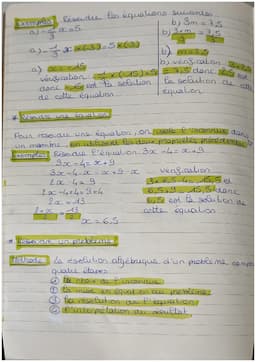 Exemples Résoudre les équations suivantes
a) -1/3 x = 5
b) 3m = 7,5
a) -1/3 x ×(-3) = 5 ×(-3)
b) 3m/3 = 7,5/3
a) x = -15
b) m = 2,5
vérification -1/3 × (-15) = 5
donc -15 est la solution
de cette équation
b) vérification 3×2,5
= 7,5 donc 2,5 est
la solution de cette
équation
* Résoudre une équation
Pour résoudre une équation, on isole l'inconnue dans
un membre, en utilisant les deux propriétés précédentes
Exemples Résoudre l'équation 3x - 4 = x + 9
3x - 4 = x + 9
3x - 4 - x = x + 9 - x
2x - 4 = 9
2x - 4 + 4 = 9 + 4
2x = 13
2x/2 = 13/2
x = 6,5
vérification
3×6,5 - 4 = 15,5 et
6,5 + 9 = 15,5 donc
6,5 est la solution de
cette équation
* Résoudre un problème
Méthode La résolution algébrique d'un problème
quatre étapes
① Le choix de l'inconnue
② La mise en équation du problème
③ La résolution de l'équation
④ L'interprétation du résultat